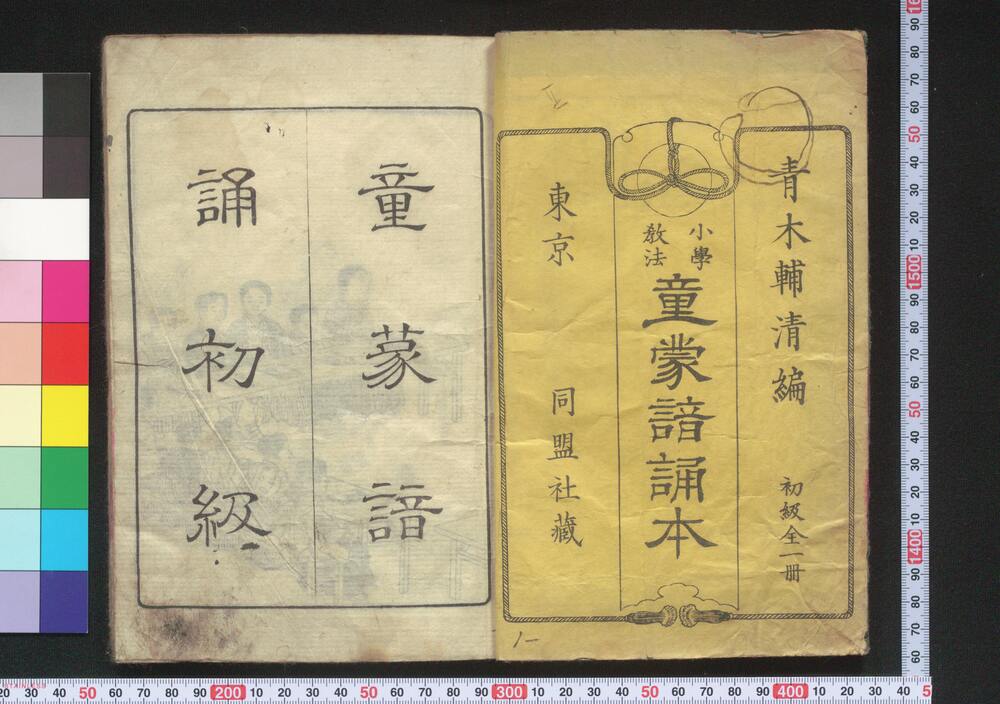 青木輔清編
初級全一冊
小學
教法
童蒙諳誦本
東京
同盟社藏
童蒙諳
誦初級